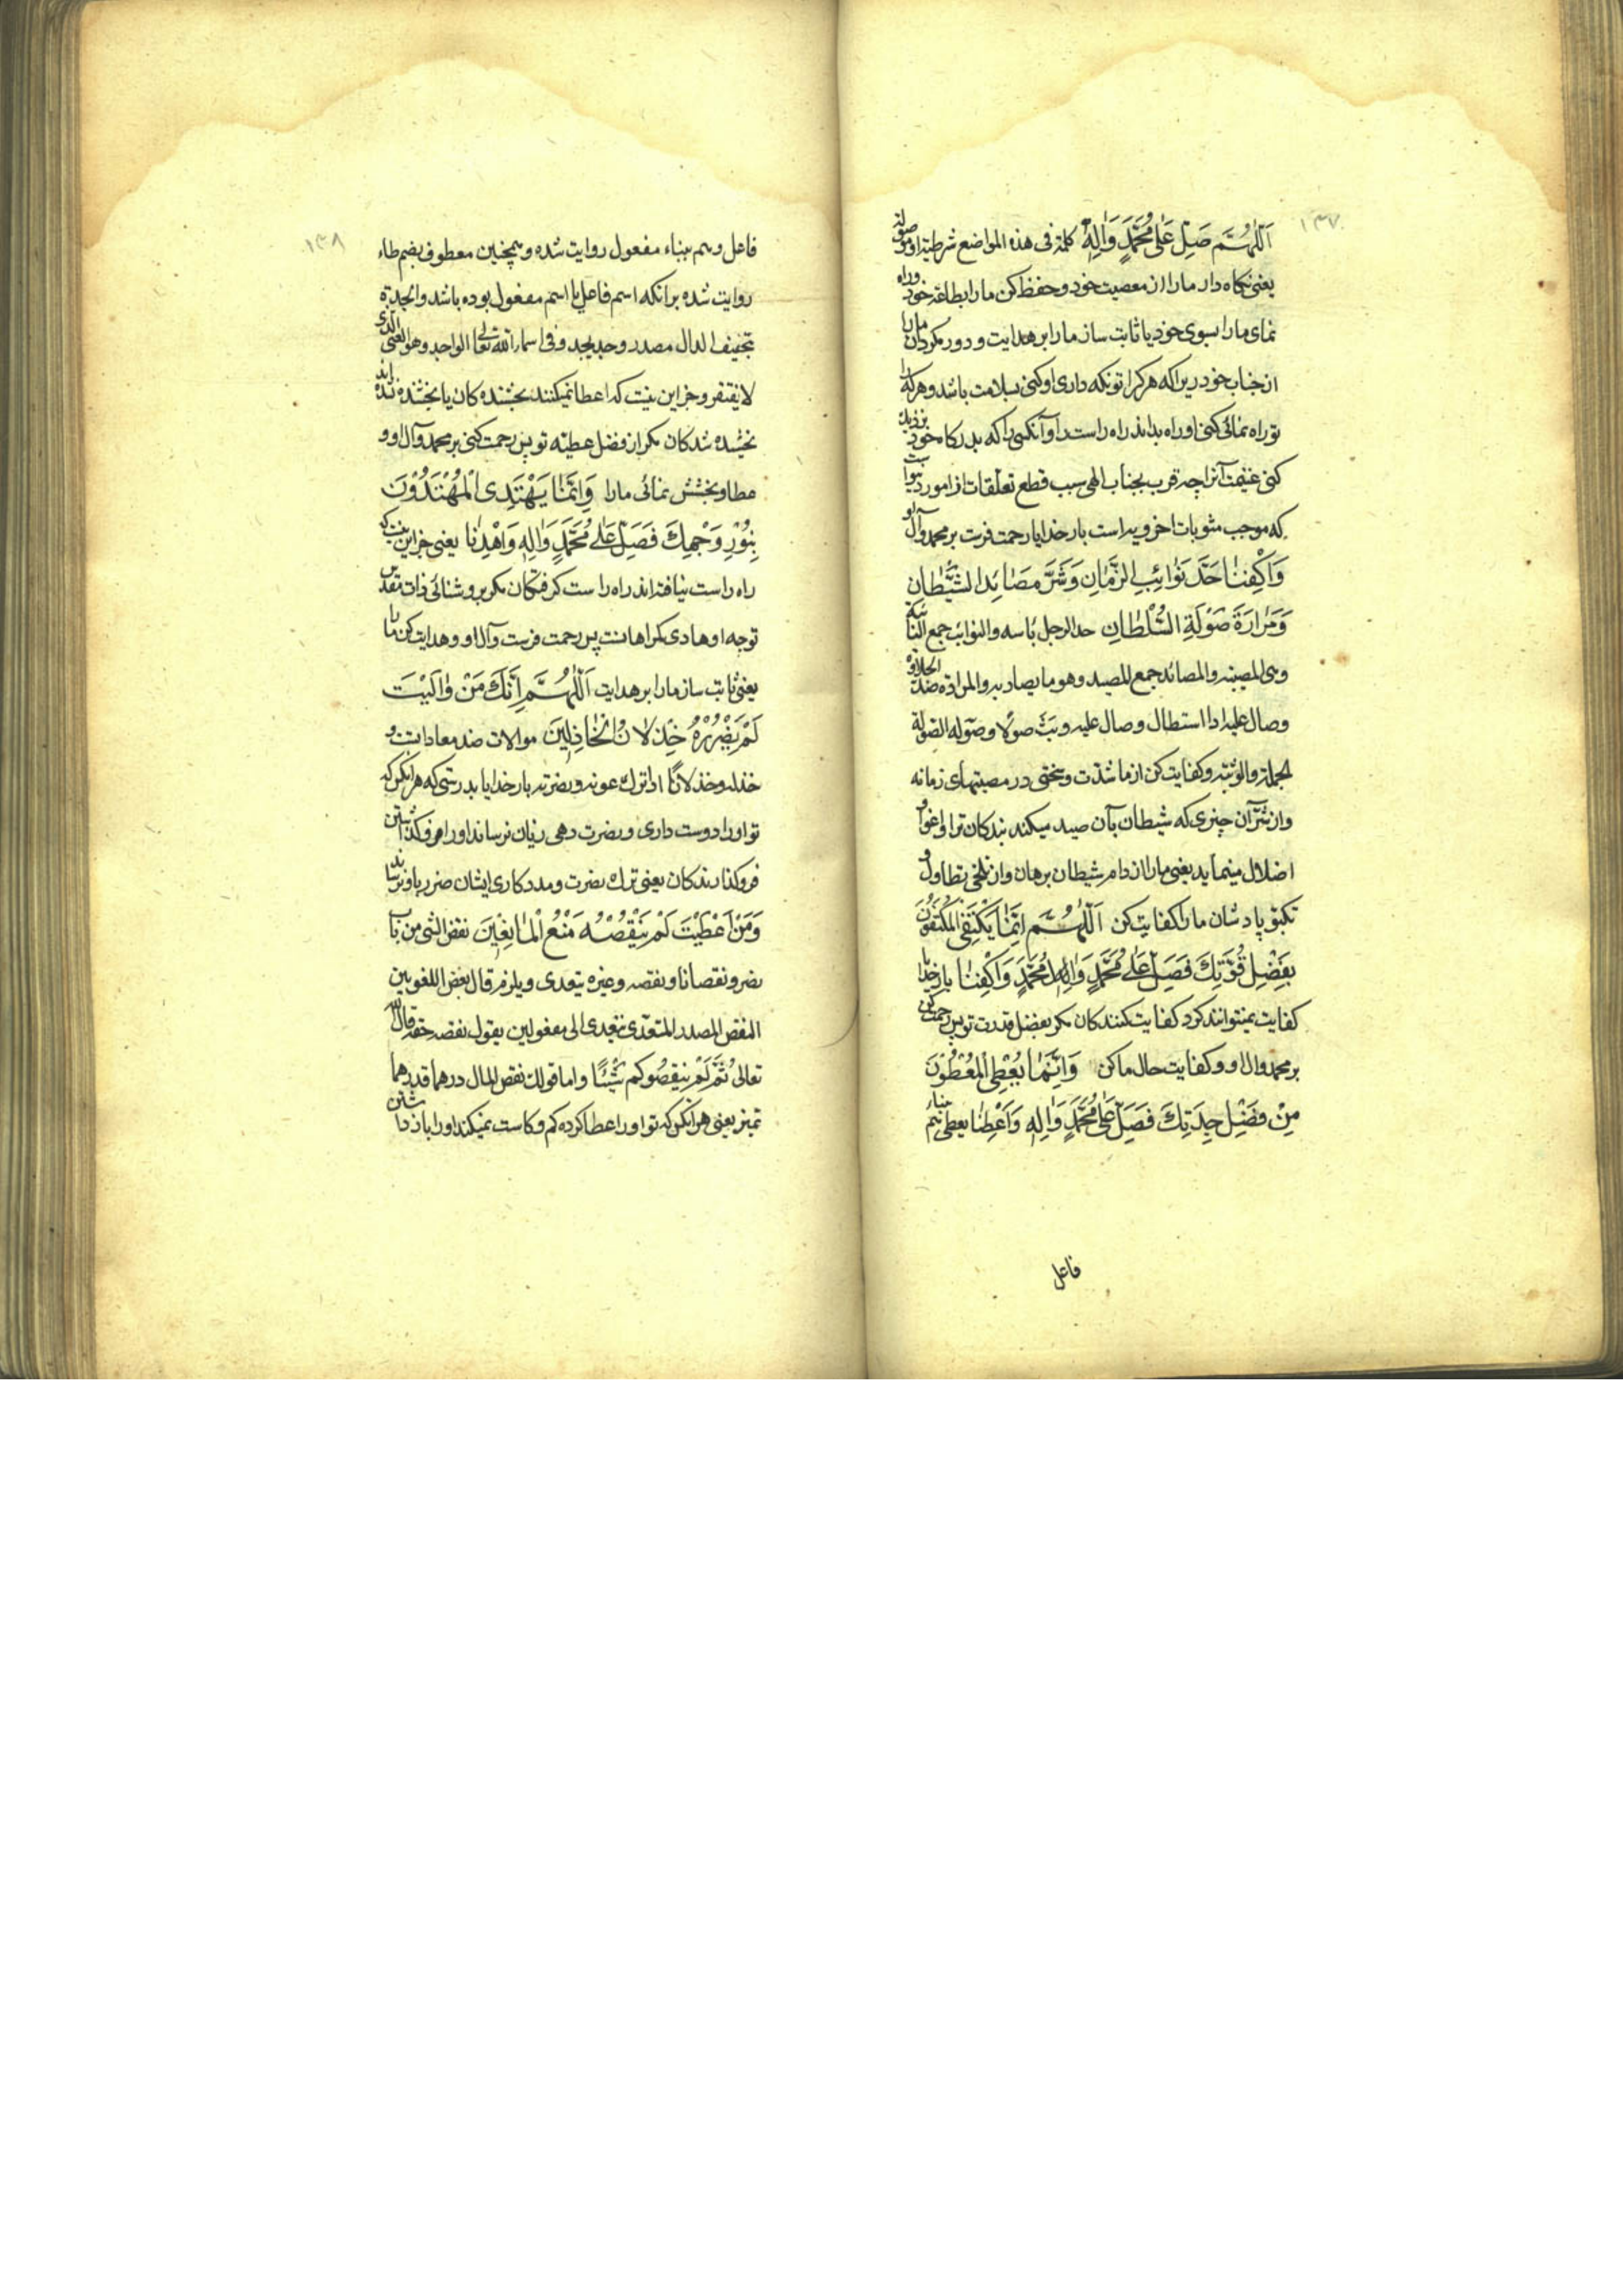 ۱۳۷
اَللّٰهُمَّ صَلِّ عَلٰى مُحَمَّدٍ وَاٰلِهٖ كلمة فى هذه المواضع شرطية او موصولة
يعنى نكاه دار ما را از معصيت خود و حفظ كن ما را بطاعة خود و راه
نماى ما را بسوى خود يا ثابت ساز ما را بر هدايت و دور مكردان ما را
از جناب خود زيرا كه هر كرا تو نكه دارى او كنى بسلامت باشد و هر كه را
تو راه نمائى كنى او راه بداند راه راست را و آنكسى را كه بدركاه خود نزديك
كنى غنيمت آنرا چه قرب بجناب الهى سبب قطع تعلقات از امور دنيوى است
كه موجب مثوبات اخرويه است بار خدايا رحمت فرست بر محمد و آل او
وَاكْفِنٰا حَدَّ نَوٰائِبِ الزَّمٰانِ وَشَرَّ مَصٰائِدِ الشَّيْطٰانِ
وَمَرٰارَةَ صَوْلَةِ السُّلْطٰانِ حد الرجل باسه والنوائب جمع النائبة
وهى المصيبة والمصائد جمع المصيد وهو ما يصاد به والمرارة ضد الحلاوة
وصال عليه اذا استطال وصال عليه وثب صولا وصولة الصولة
الحملة والوثبة و كفايت كن از ما شدت و سختى در مصيبتهاى زمانه
و از شر آن چيزى كه شيطان بآن صيد ميكند بندكان ترا و اغوا و
اضلال مينمايد يعنى ما را از دام شيطان برهان و از تلخى تطاول و
پادشان ما را كفايت كن اَللّٰهُمَّ اِنَّمٰا يَكْتَفِى الْمُكْتَفُونَ
بِفَضْلِ قُوَّتِكَ فَصَلِّ عَلٰى مُحَمَّدٍ وَاٰلِ مُحَمَّدٍ وَاكْفِنٰا بار خدايا
كفايت نميتوانند كرد كفايت كنندكان مكر بفضل قدرت تو پس رحمت كن
بر محمد و ال او و كفايت حال ما كن وَاِنَّمٰا يُعْطِى الْمُعْطُونَ
مِنْ فَضْلِ جِدَتِكَ فَصَلِّ عَلٰى مُحَمَّدٍ وَاٰلِهٖ وَاَعْطِنٰا يعطى بهم بناء
فاعل
۱۳۸
فاعل و هم ببناء مفعول روايت شده و همچنين معطون بضم طاء
روايت شده برانكه اسم فاعل يا اسم مفعول بوده باشد والجدة
بتخفيف الدال مصدر وجد يجد و فى اسماء الله تعالى الواجد وهو الغنى الذى
لا يفتقر و جز اين نيست كه اعطا نميكنند بخشنده كان يا بخشنده نشده اند
بخشيده شدكان مكر از فضل عطيّه تو پس رحمت كنى بر محمد و آل او و
عطا و بخشش نمائى ما را وَاِنَّمٰا يَهْتَدِى الْمُهْتَدُوْنَ
بِنُوْرِ وَجْهِكَ فَصَلِّ عَلٰى مُحَمَّدٍ وَاٰلِهٖ وَاهْدِنٰا يعنى جز اين نيست كه
راه راست نيافته اند راه راست كرفتكان مكر بروشنائى ذات مقدس
تو چه او هادى كمراهانست پس رحمت فرست و آل او و هدايت كن ما را
يعنى ثابت ساز ما را بر هدايت اَللّٰهُمَّ اِنَّكَ مَنْ وٰالَيْتَ
لَمْ يَضْرُرْهُ خِذْلٰانُ الْخٰاذِلِيْنَ موالات ضد معاداتست و
خذله و خذلانا اذا ترك عونه و نصرته بار خدايا بدرستى كه هر انكس كه
تو او را دوست دارى و نصرت دهى زيان نرساند او را فروكذاشتن
فروكذارندكان يعنى ترك نصرت و مددكارى ايشان ضرر باو نرساند
وَمَنْ اَعْطَيْتَ لَمْ يَنْقُصْهُ مَنْعُ الْمٰانِعِيْنَ نقص الشى من باب
نصر و نقصانا و نقصه و غيره يتعدى و يلزم قال بعض اللغويين
النقص المصدر المتعدى تتعدى الى مفعولين يقول نقصه حقه قال الله
تعالى ثُمَّ لَمْ يَنْقُصُوكُمْ شَيْئًا و اما قولك نقص المال درهما فدرهما
تميز يعنى هر انكس كه تو او را عطا كرده كم و كاست نميكند او را باز داشتن